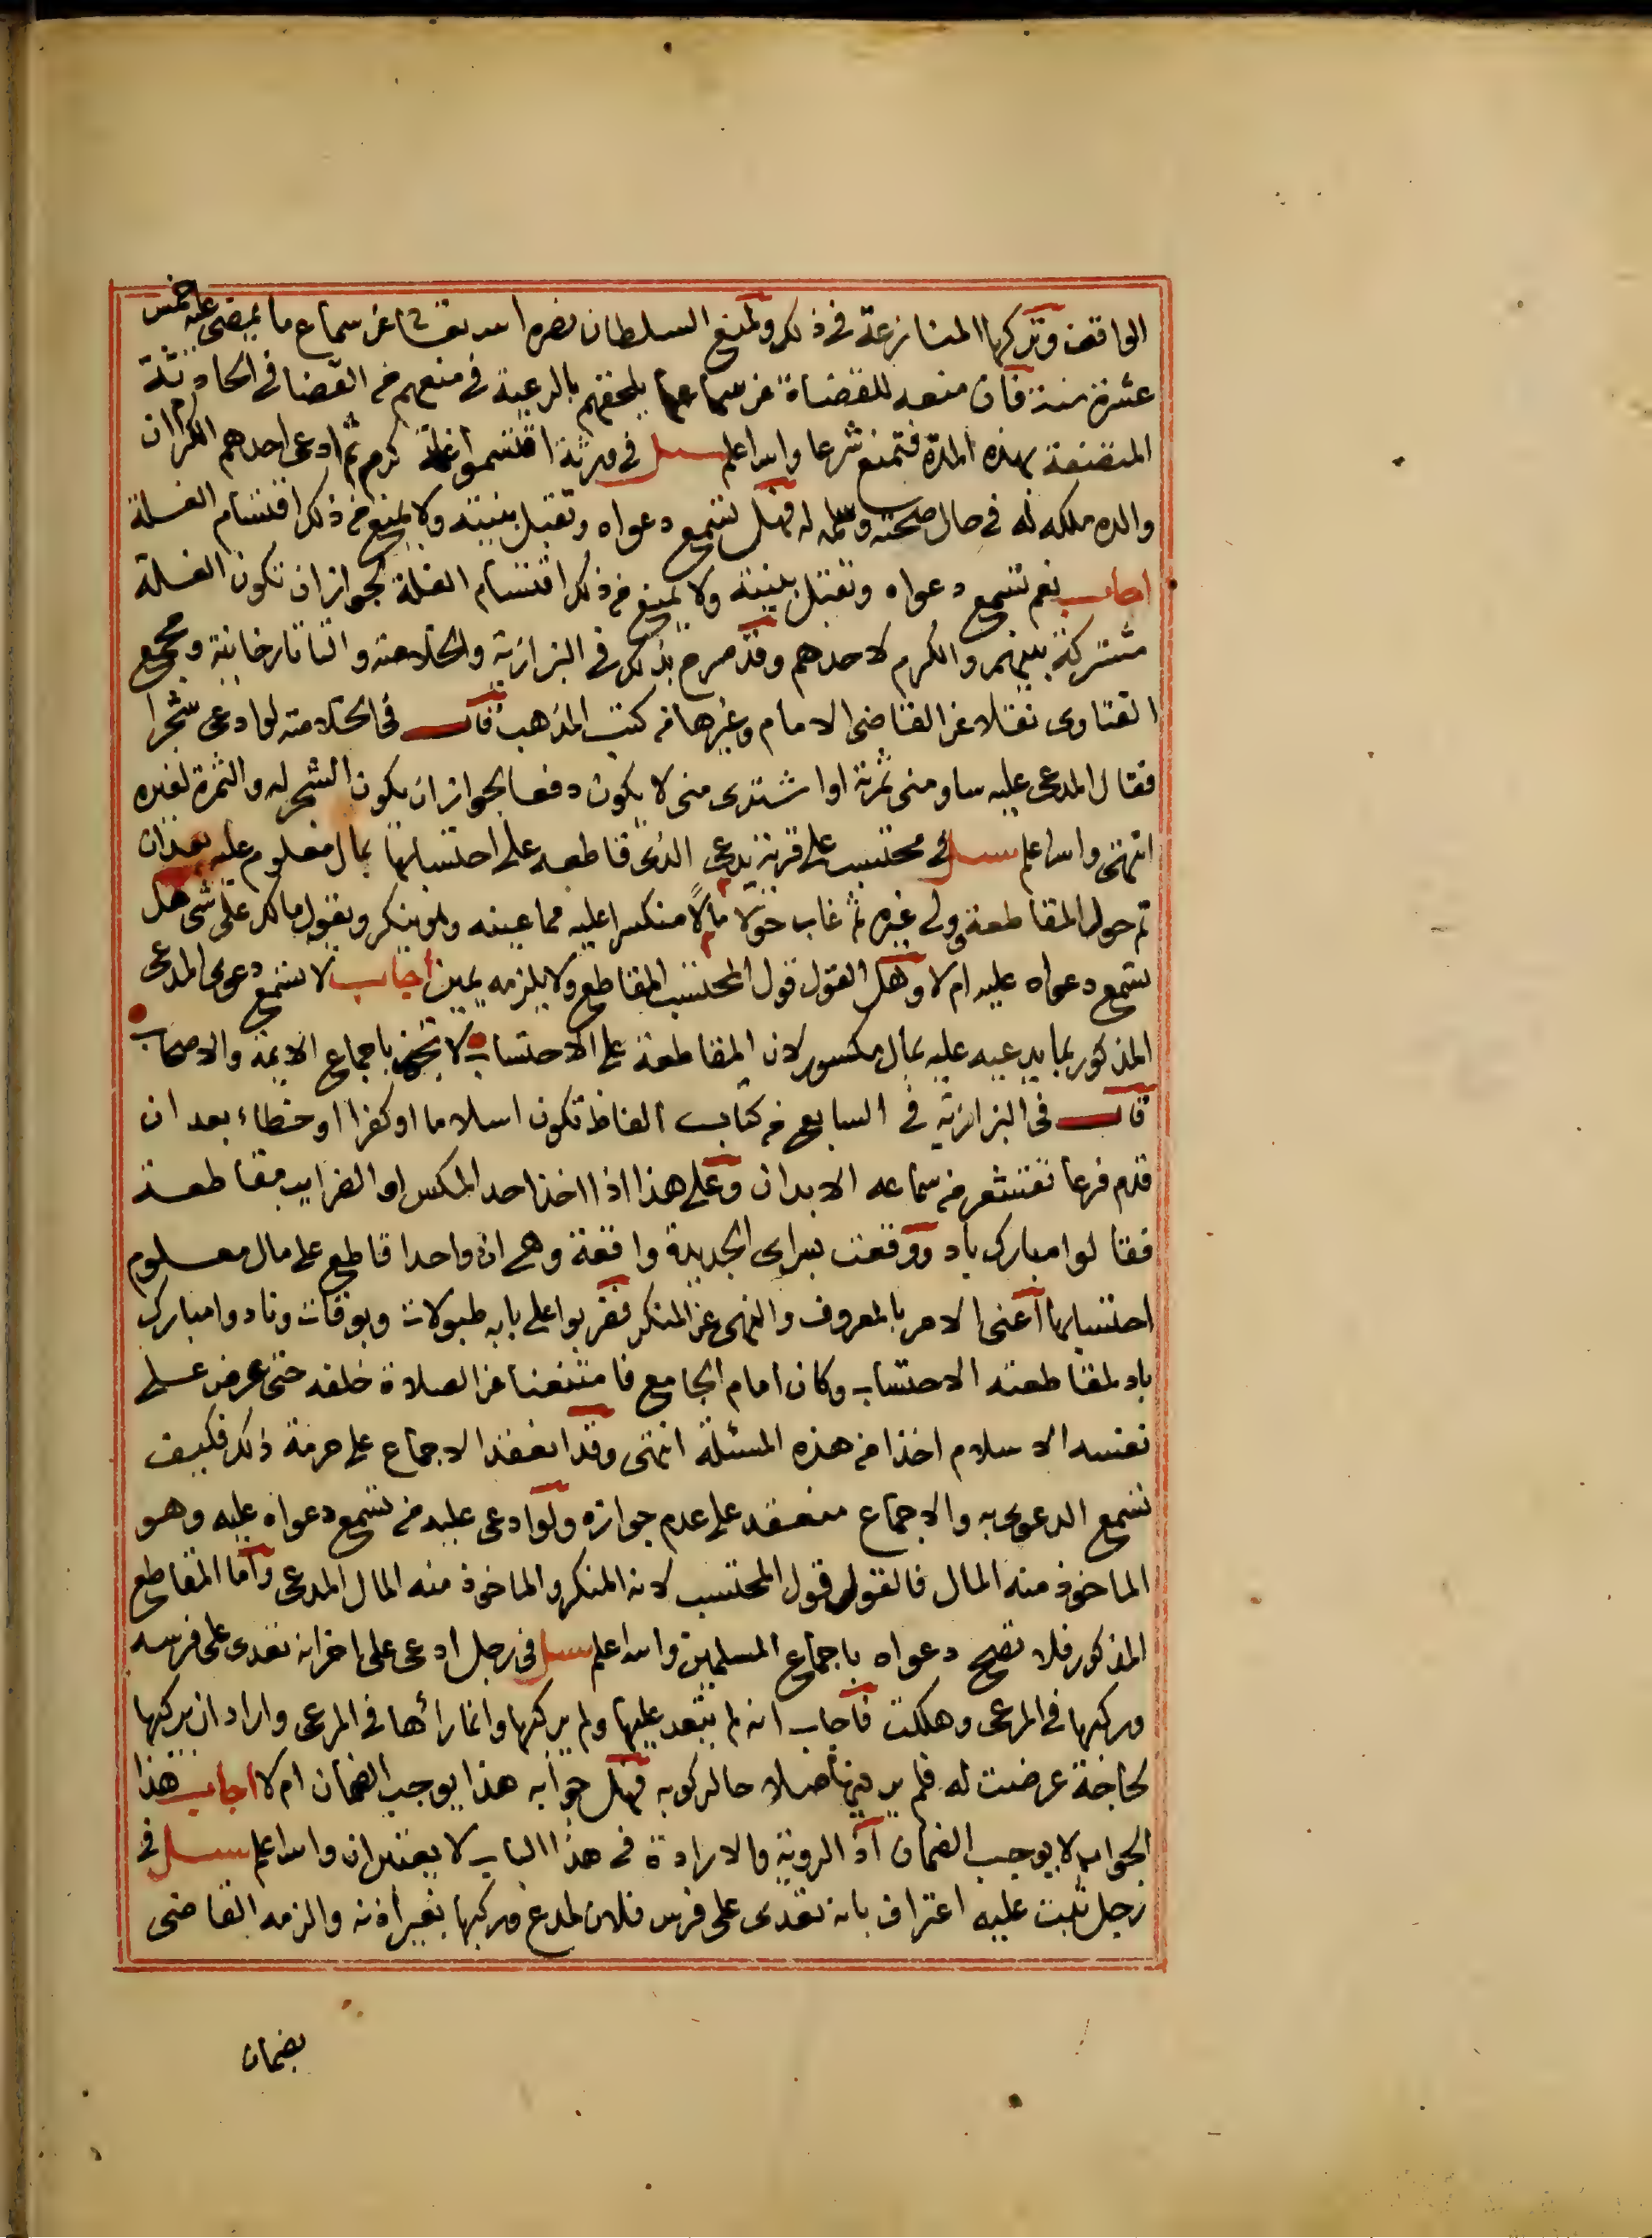 الواقف وتركها المنازعة في ذلك ولمنع السلطان نصره الله تعالى عن سماع ما يمضي عليه خمس
عشرة سنة فان منعه للقضاة عن سماعها يلحقهم بالرعية في منعهم من القضا في الحادثة
المتصفة بهذه المدة فتمنع شرعا والله اعلم سئل في ورثة اقتسموا غلة كرم ثم ادعى احدهم الكرم ان
والده ملكه له في حال صحته وسلمه له فهل تسمع دعواه وتقبل بينته ولا يمنع من ذلك اقتسام الغلة
اجاب نعم تسمع دعواه وتقبل بينته ولا يمنع من ذلك اقتسام الغلة لجواز ان تكون الغلة
مشتركة بينهم والكرم لاحدهم وقد صرح بذلك في البزازية والخلاصة والتاتارخانية ومجمع
الفتاوى نقلا عن القاضى الامام وغيرها من كتب المذهب قال في الخلاصة لو ادعى شجرا
فقال المدعى عليه ساومنى ثمرته او اشترى منى لا يكون دفعا لجواز ان يكون الشجر له والثمرة لغيره
انتهى والله اعلم سئل في محتسب على قرية يدعى الذى قاطعه على احتسابها بمال معلوم عليه بعد ان
تم حول المقاطعة وولى غيره ثم غاب حولا مالا منكسرا عليه مما عينه وهو ينكر ويقول مالك على شى هل
تسمع دعواه عليه ام لا وهل القول قول المحتسب المقاطع ولا يلزمه يمين اجاب لا تسمع دعوى المدعى
المذكور بما يدعيه عليه بمال مكسور لان المقاطعة على الاحتساب لا تجوز باجماع الائمة والاصحاب
قال في البزازية في السابع من كتاب الفاظ تكون اسلاما او كفرا او خطاء بعد ان
قدم فرعا تقشعر من سماعه الابدان وعلى هذا اذا اخذ احد المكس او الضرايب مقاطعة
فقالوا مبارك باد ووقعت بسراى الجديدة واقعة وهي ان واحدا قاطع على مال معلوم
احتسابها اعنى الامر بالمعروف والنهى عن المنكر فضربوا على بابه طبولات وبوقات ونادوا مبارك
باد لمقاطعته الاحتساب وكان امام الجامع فامتنعنا عن الصلاة خلفه حتى عرض على
نفسه الاسلام اخذا من هذه المسئلة انتهى وقد انعقد الاجماع على حرمة ذلك فكيف
تسمع الدعوى به والاجماع منعقد على عدم جوازه ولو ادعى عليه من تسمع دعواه عليه وهو
الماخوذ منه المال فالقول قول المحتسب لانه المنكر والماخوذ منه المال المدعى واما المقاطع
المذكور فلا تصح دعواه باجماع المسلمين والله اعلم سئل في رجل ادعى على اخر انه تعدى على فرسه
وركبها في المرعى وهلكت فاجاب انه لم يتعد عليها ولم يركبها وانما رائها في المرعى واراد ان يركبها
لحاجة عرضت له فلم ير فيها اصلا حال ركوبه فهل جوابه هذا يوجب الضمان ام لا اجاب هذا
الجواب لا يوجب الضمان اذ الروية والارادة في هذا الباب لا يعتبران والله اعلم سئل في
رجل ثبت عليه اعتراف بانه تعدى على فرس فلان المدعى وركبها بغير اذنه والزمه القاضى
بضمان